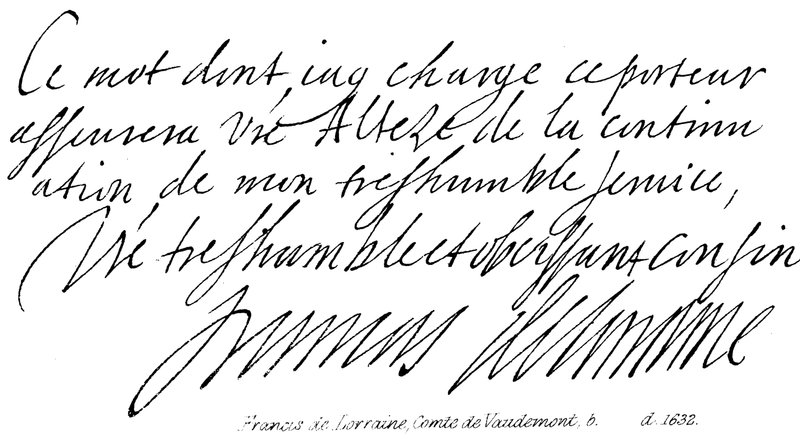 Ce mot dont iay charge ce porteur
asseurera Vre Alteze de la continu
ation de mon treshumble seruice,
Vre treshumble et obeissant Cousin
francois de Lorraine
Francis de Lorraine, Comte de Vaudemont, b. d. 1632.